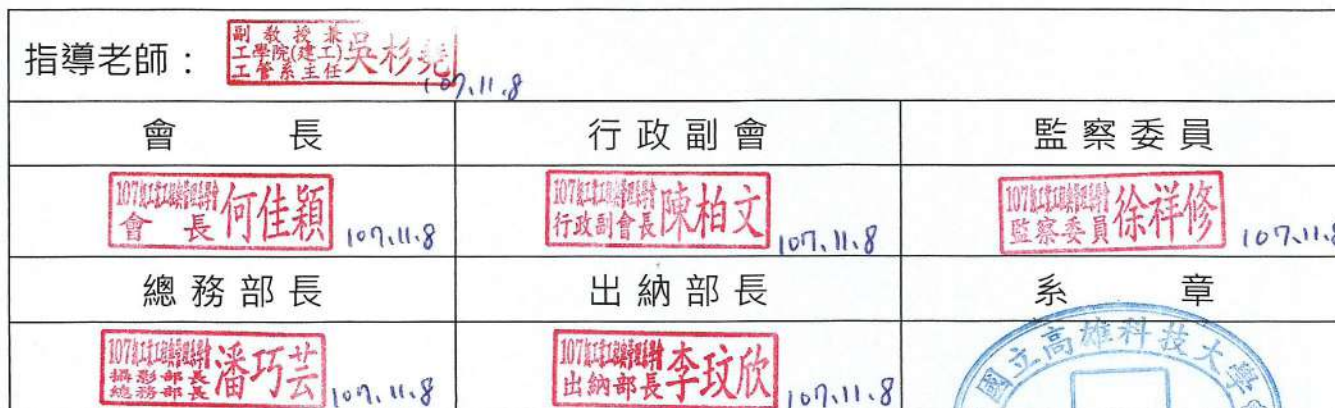 指導老師：
副教授兼
工學院(建工)
工管系主任 吳杉堯
107.11.8
會長 行政副會 監察委員
會長 何佳穎 107.11.8
行政副會長 陳柏文 107.11.8
監察委員 徐祥修 107.11.8
總務部長 出納部長 系章
攝影部長
總務部長 潘巧芸 107.11.8
出納部長 李玟欣 107.11.8
國立高雄科技大學